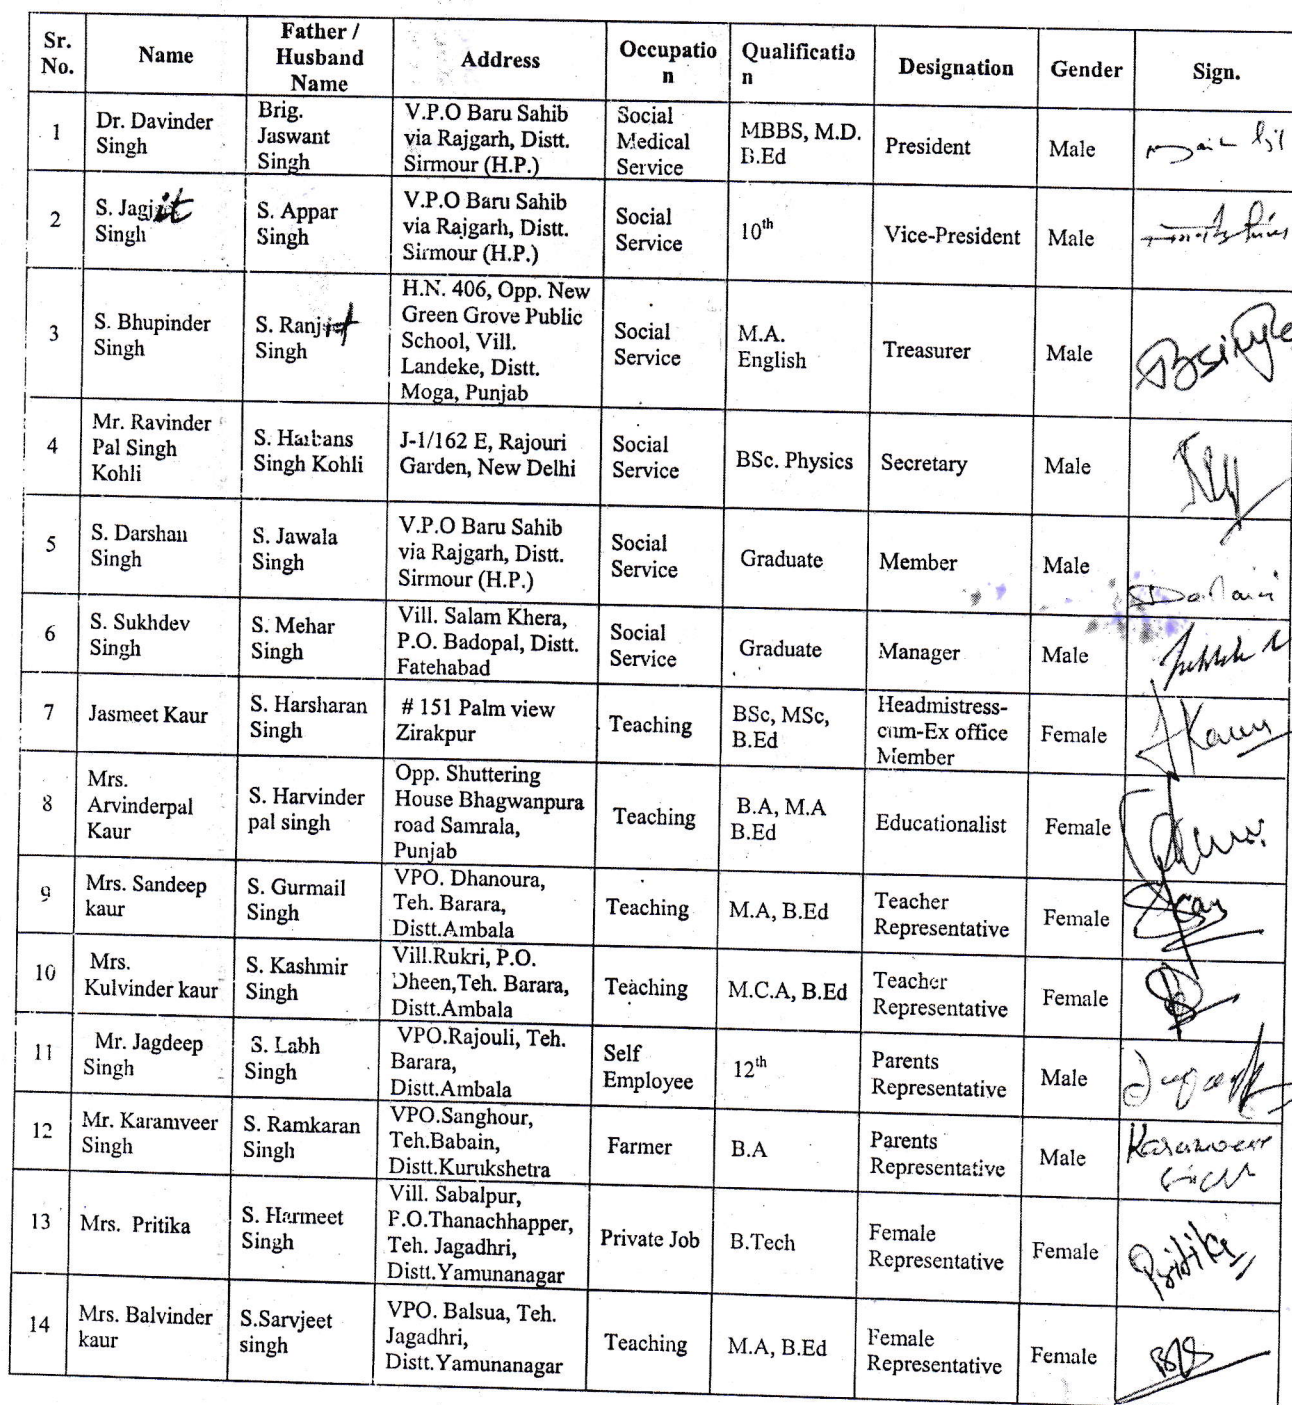 Sr. No. Name Father / Husband Name Address Occupatio n Qualificatio n Designation Gender Sign.
1 Dr. Davinder Singh Brig. Jaswant Singh V.P.O Baru Sahib via Rajgarh, Distt. Sirmour (H.P.) Social Medical Service MBBS, M.D. B.Ed President Male
2 S. Jagjit Singh S. Appar Singh V.P.O Baru Sahib via Rajgarh, Distt. Sirmour (H.P.) Social Service 10th Vice-President Male
3 S. Bhupinder Singh S. Ranjit Singh H.N. 406, Opp. New Green Grove Public School, Vill. Landeke, Distt. Moga, Punjab Social Service M.A. English Treasurer Male
4 Mr. Ravinder Pal Singh Kohli S. Harbans Singh Kohli J-1/162 E, Rajouri Garden, New Delhi Social Service BSc. Physics Secretary Male
5 S. Darshan Singh S. Jawala Singh V.P.O Baru Sahib via Rajgarh, Distt. Sirmour (H.P.) Social Service Graduate Member Male
6 S. Sukhdev Singh S. Mehar Singh Vill. Salam Khera, P.O. Badopal, Distt. Fatehabad Social Service Graduate Manager Male
7 Jasmeet Kaur S. Harsharan Singh # 151 Palm view Zirakpur Teaching BSc, MSc, B.Ed Headmistress-cum-Ex office Member Female JKaur
8 Mrs. Arvinderpal Kaur S. Harvinder pal singh Opp. Shuttering House Bhagwanpura road Samrala, Punjab Teaching B.A, M.A B.Ed Educationalist Female
9 Mrs. Sandeep kaur S. Gurmail Singh VPO. Dhanoura, Teh. Barara, Distt.Ambala Teaching M.A, B.Ed Teacher Representative Female
10 Mrs. Kulvinder kaur S. Kashmir Singh Vill.Rukri, P.O. Dheen,Teh. Barara, Distt.Ambala Teaching M.C.A, B.Ed Teacher Representative Female
11 Mr. Jagdeep Singh S. Labh Singh VPO.Rajouli, Teh. Barara, Distt.Ambala Self Employee 12th Parents Representative Male
12 Mr. Karamveer Singh S. Ramkaran Singh VPO.Sanghour, Teh.Babain, Distt.Kurukshetra Farmer B.A Parents Representative Male Karamveer Singh
13 Mrs. Pritika S. Harmeet Singh Vill. Sabalpur, P.O.Thanachhapper, Teh. Jagadhri, Distt.Yamunanagar Private Job B.Tech Female Representative Female Pritika
14 Mrs. Balvinder kaur S.Sarvjeet singh VPO. Balsua, Teh. Jagadhri, Distt.Yamunanagar Teaching M.A, B.Ed Female Representative Female